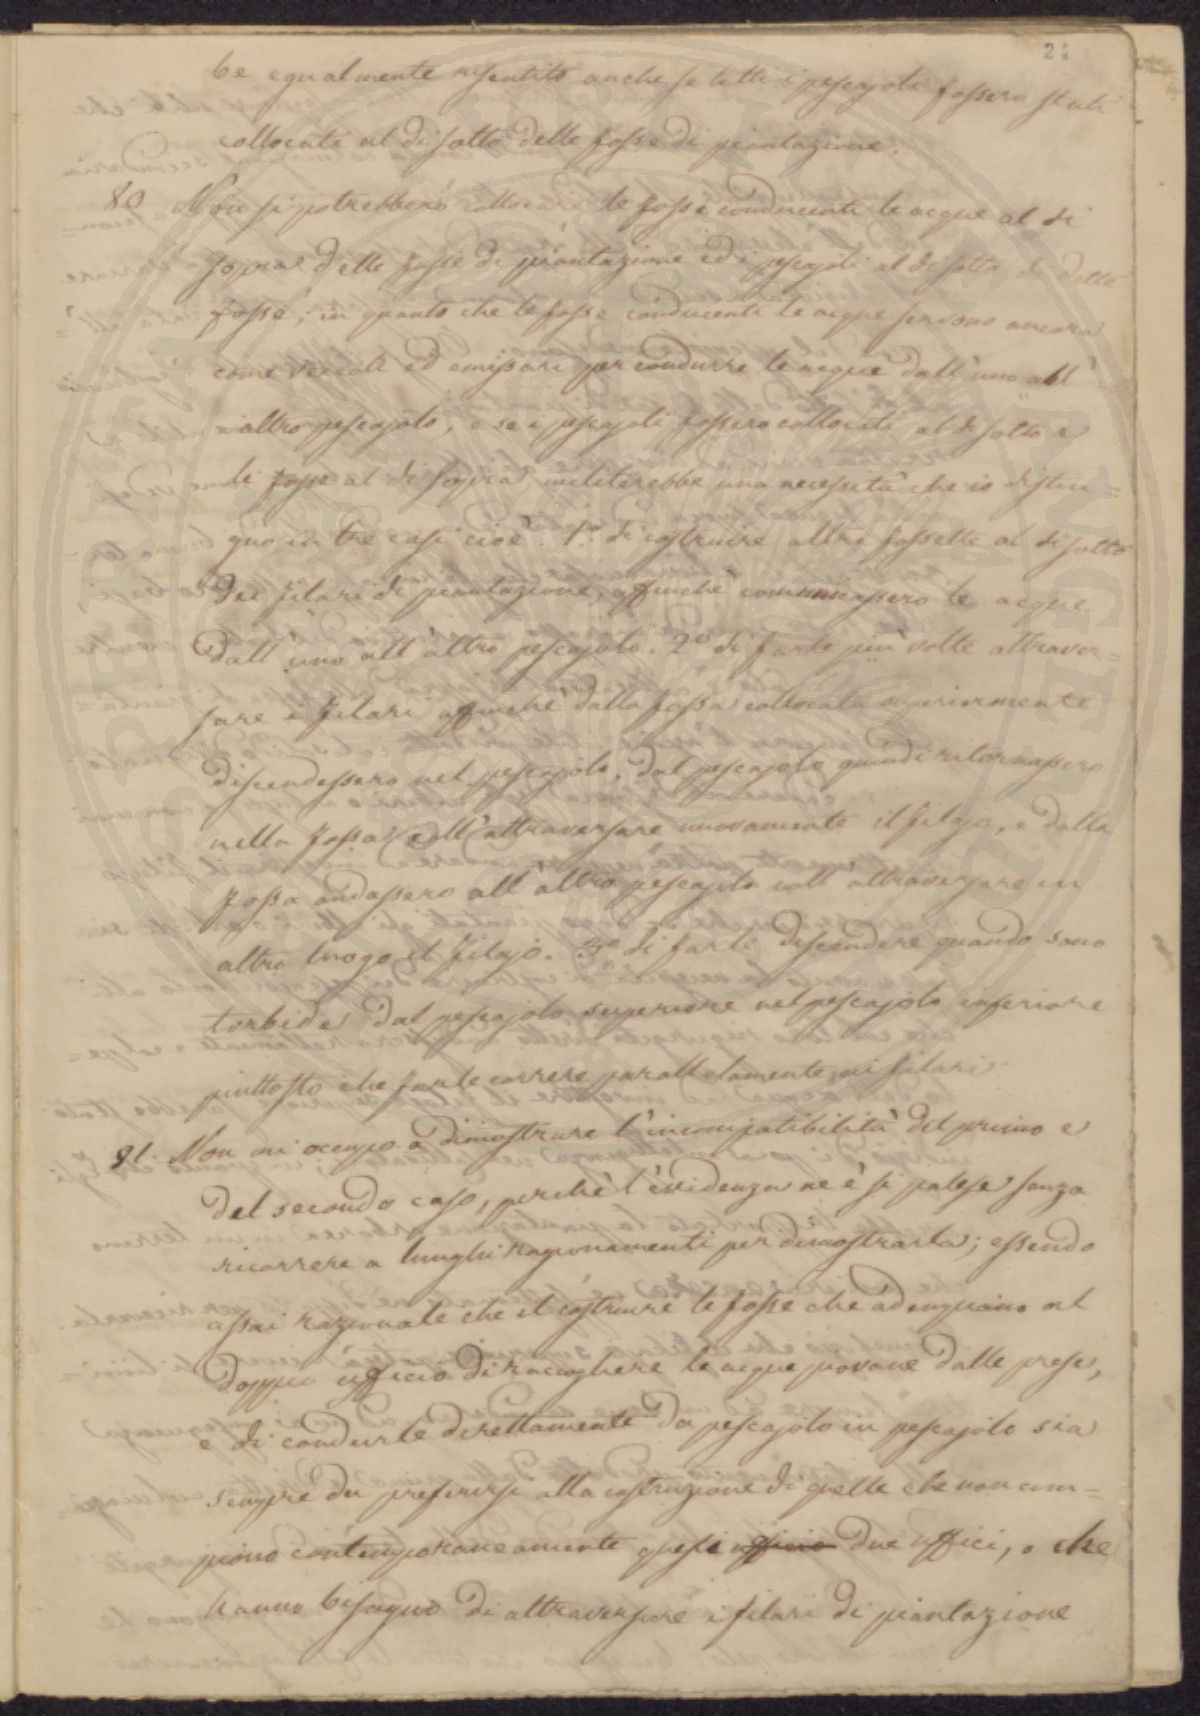 21
be egualmente risentito anche se tutti i pescajoli fossero stati
collocati al di sotto delle fosse di piantazione.
80 Non si potrebbero collocare le fosse conducenti le acque al di
sopra delle fosse di piantazione ed i pescajoli al di sotto di dette
fosse; in quanto che le fosse conducenti le acque servono ancora
come veicoli ed emissari per condurre le acque dall'uno all'
altro pescajolo, e se i pescajoli fossero collocati al di sotto e
le fosse al di sopra, militerebbe una necessità che io distin=
guo in tre casi cioè. 1.° di costruire altre fossette al disotto
dei filari di piantazione, affinchè comunicassero le acque
dall'uno all'altro pescajolo. 2° di farle più volte attraver=
sare i filari affinchè dalla fossa collocata superiormente
discendessero nel pescajolo, dal pescajolo quindi ritornassero
nella fossa coll'attraversare nuovamente il filajo, e dalla
fossa andassero all'altro pescajolo coll'attraversare in
altro luogo il filajo. 3° di farle discendere quando sono
torbide dal pescajolo superiore nel pescajolo inferiore
piuttosto che farle correre parallelamente ai filari.
81. Non mi occupo a dimostrare l'incompatibilità del primo e
del secondo caso, perchè l'evidenza ne è sì palese senza
ricorrere a lunghi ragionamenti per dimostrarla; essendo
assai razionale che il costruire le fosse che adempiano al
doppio ufficio di raccogliere le acque piovane dalle prese,
e di condurle direttamente da pescajolo in pescajolo sia
sempre da preferirsi alla costruzione di quelle che non com=
piono contemporaneamente questi ufficio due uffici, o che
hanno bisogno di attraversare i filari di piantazione